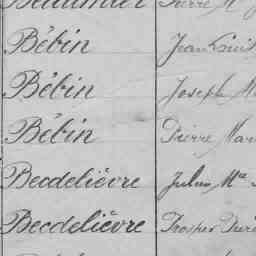 Bébin Jean Louis
Bébin Joseph
Bébin Pierre
Becdelièvre Jules Mie
Becdelièvre Prosper